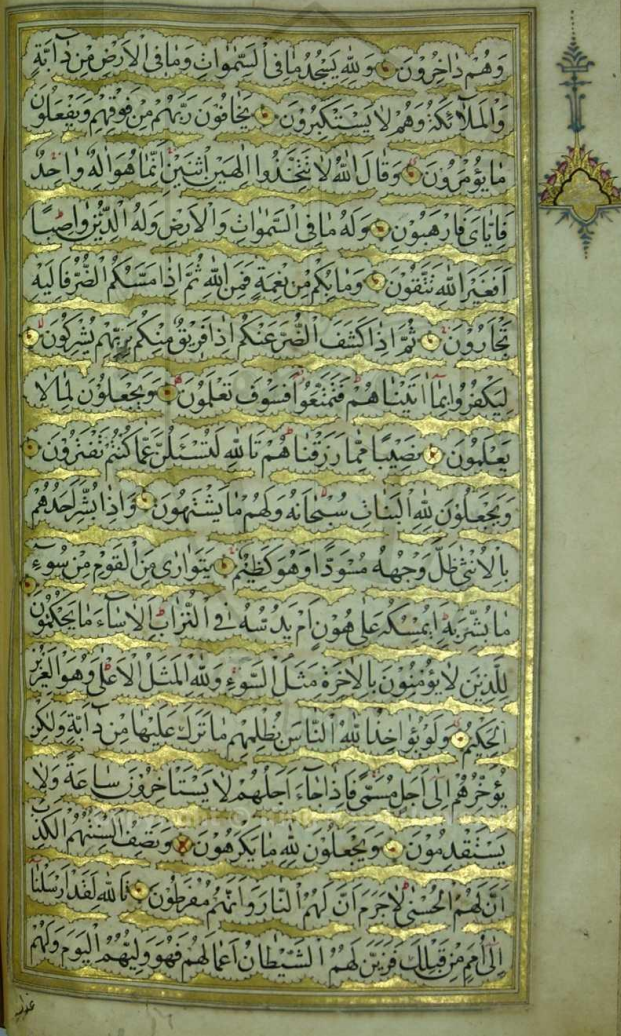 وَهُمْ دَاخِرُونَ وَلِلّٰهِ يَسْجُدُ مَا فِى السَّمٰوَاتِ وَمَا فِى الْاَرْضِ مِنْ دَآبَّةٍ
وَالْمَلٰٓئِكَةُ وَهُمْ لَا يَسْتَكْبِرُونَ يَخَافُونَ رَبَّهُمْ مِنْ فَوْقِهِمْ وَيَفْعَلُونَ
مَا يُؤْمَرُونَ وَقَالَ اللّٰهُ لَا تَتَّخِذُوا اِلٰهَيْنِ اثْنَيْنِ اِنَّمَا هُوَ اِلٰهٌ وَاحِدٌ
فَاِيَّاىَ فَارْهَبُونِ وَلَهُ مَا فِى السَّمٰوَاتِ وَالْاَرْضِ وَلَهُ الدِّينُ وَاصِبًا
اَفَغَيْرَ اللّٰهِ تَتَّقُونَ وَمَا بِكُمْ مِنْ نِعْمَةٍ فَمِنَ اللّٰهِ ثُمَّ اِذَا مَسَّكُمُ الضُّرُّ فَاِلَيْهِ
تَجْأَرُونَ ثُمَّ اِذَا كَشَفَ الضُّرَّ عَنْكُمْ اِذَا فَرِيقٌ مِنْكُمْ بِرَبِّهِمْ يُشْرِكُونَ
لِيَكْفُرُوا بِمَا اٰتَيْنَاهُمْ فَتَمَتَّعُوا فَسَوْفَ تَعْلَمُونَ وَيَجْعَلُونَ لِمَا لَا
يَعْلَمُونَ نَصِيبًا مِمَّا رَزَقْنَاهُمْ تَاللّٰهِ لَتُسْئَلُنَّ عَمَّا كُنْتُمْ تَفْتَرُونَ
وَيَجْعَلُونَ لِلّٰهِ الْبَنَاتِ سُبْحَانَهُ وَلَهُمْ مَا يَشْتَهُونَ وَاِذَا بُشِّرَ اَحَدُهُمْ
بِالْاُنْثٰى ظَلَّ وَجْهُهُ مُسْوَدًّا وَهُوَ كَظِيمٌ يَتَوَارٰى مِنَ الْقَوْمِ مِنْ سُوٓءِ
مَا بُشِّرَ بِهِ اَيُمْسِكُهُ عَلٰى هُونٍ اَمْ يَدُسُّهُ فِى التُّرَابِ اَلَا سَآءَ مَا يَحْكُمُونَ
لِلَّذِينَ لَا يُؤْمِنُونَ بِالْاٰخِرَةِ مَثَلُ السَّوْءِ وَلِلّٰهِ الْمَثَلُ الْاَعْلٰى وَهُوَ الْعَزِيزُ
الْحَكِيمُ وَلَوْ يُؤَاخِذُ اللّٰهُ النَّاسَ بِظُلْمِهِمْ مَا تَرَكَ عَلَيْهَا مِنْ دَآبَّةٍ وَلٰكِنْ
يُؤَخِّرُهُمْ اِلٰى اَجَلٍ مُسَمًّى فَاِذَا جَآءَ اَجَلُهُمْ لَا يَسْتَاْخِرُونَ سَاعَةً وَلَا
يَسْتَقْدِمُونَ وَيَجْعَلُونَ لِلّٰهِ مَا يَكْرَهُونَ وَتَصِفُ اَلْسِنَتُهُمُ الْكَذِبَ
اَنَّ لَهُمُ الْحُسْنٰى لَا جَرَمَ اَنَّ لَهُمُ النَّارَ وَاَنَّهُمْ مُفْرَطُونَ تَاللّٰهِ لَقَدْ اَرْسَلْنَا
اِلٰى اُمَمٍ مِنْ قَبْلِكَ فَزَيَّنَ لَهُمُ الشَّيْطَانُ اَعْمَالَهُمْ فَهُوَ وَلِيُّهُمُ الْيَوْمَ وَلَهُمْ